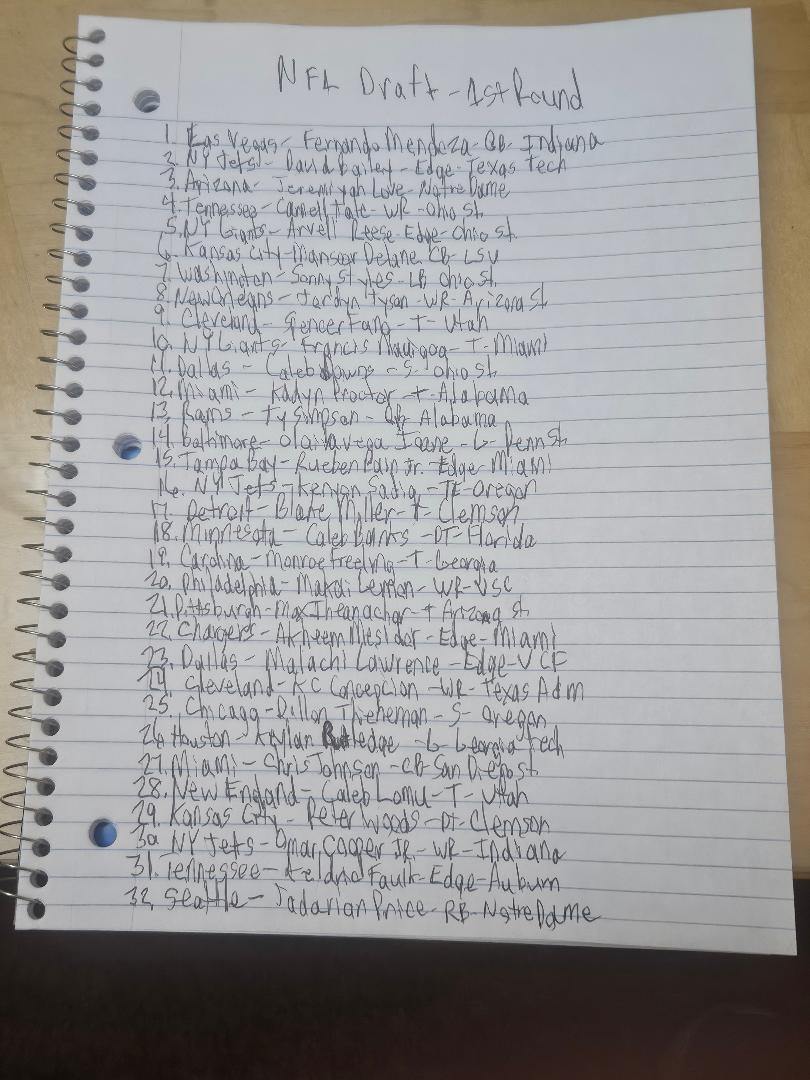 NFL Draft - 1st Round
1. Las Vegas - Fernando Mendoza - QB - Indiana
2. NY Jets - David Bailey - Edge - Texas Tech
3. Arizona - Jeremiyah Love - Notre Dame
4. Tennessee - Carnell Tate - WR - Ohio St.
5. NY Giants - Arvell Reese - Edge - Ohio St.
6. Kansas City - Mansoor Delane CB - LSU
7. Washington - Sonny Styles - LB Ohio St.
8. New Orleans - Jordyn Tyson - WR - Arizona St
9. Cleveland - Spencer Fano - T - Utah
10. NY Giants - Francis Mauigoa - T - Miami
11. Dallas - Caleb Downs - S - Ohio St.
12. Miami - Kadyn Proctor - T - Alabama
13. Rams - Ty Simpson - QB - Alabama
14. Baltimore - Olaivavega Ioane - G - Penn St.
15. Tampa Bay - Rueben Bain Jr. - Edge - Miami
16. NY Jets - Kenyon Sadiq - TE - Oregon
17. Detroit - Blake Miller - T - Clemson
18. Minnesota - Caleb Banks - DT - Florida
19. Carolina - Monroe Freeling - T - Georgia
20. Philadelphia - Makai Lemon - WR - USC
21. Pittsburgh - Max Iheanachor - T Arizona St.
22. Chargers - Akheem Mesidor - Edge - Miami
23. Dallas - Malachi Lawrence - Edge - UCF
24. Cleveland - KC Concepcion - WR - Texas A&M
25. Chicago - Dillon Thieneman - S - Oregon
26. Houston - Keylan Rutledge - G - Georgia Tech
27. Miami - Chris Johnson - CB - San Diego St.
28. New England - Caleb Lomu - T - Utah
29. Kansas City - Peter Woods - DT - Clemson
30 NY Jets - Omar Cooper JR. - WR - Indiana
31. Tennessee - Keldric Faulk - Edge - Auburn
32. Seattle - Jadarian Price - RB - Notre Dame